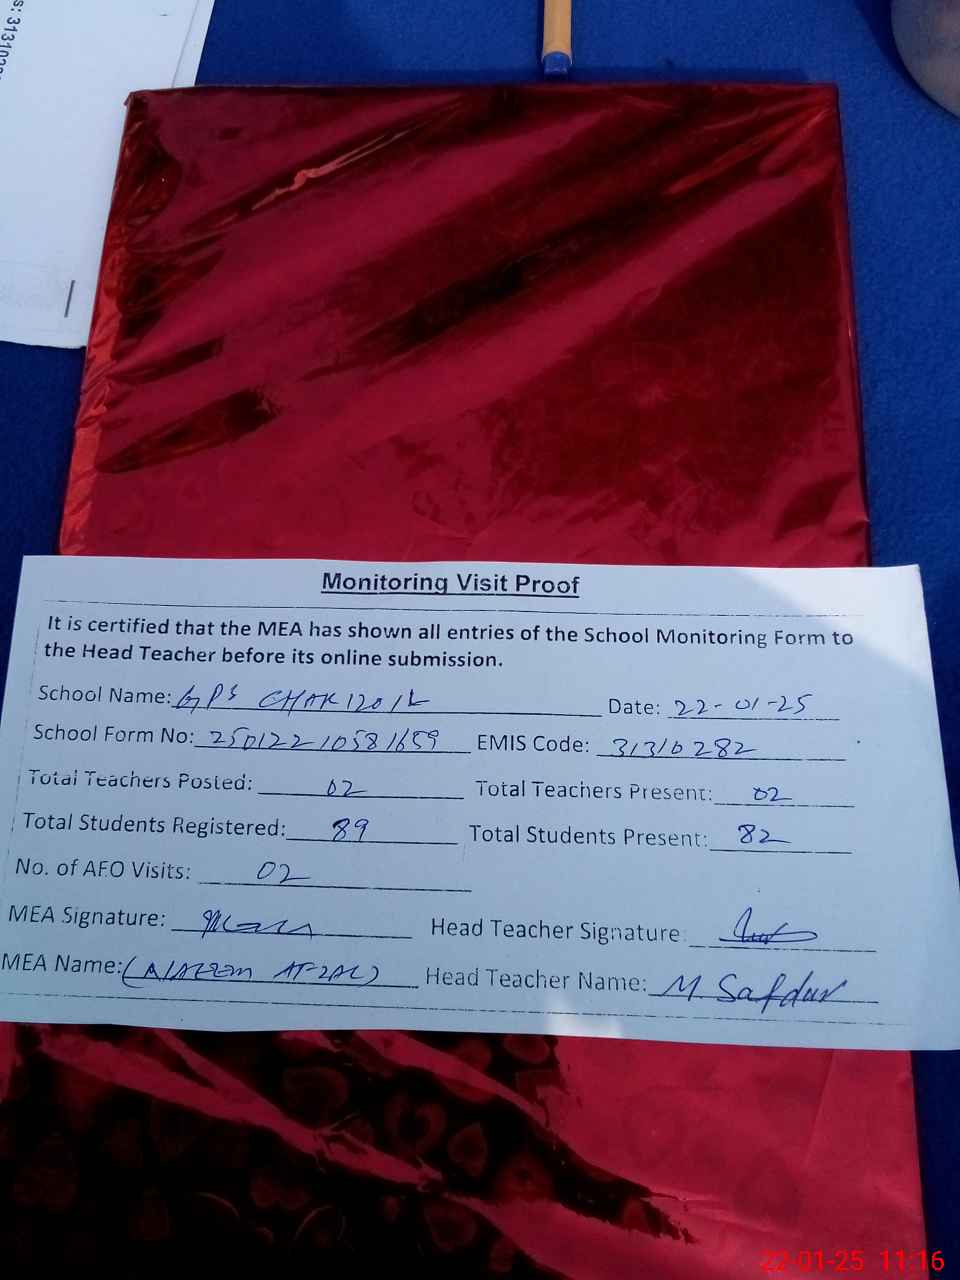 s: 3131028
Monitoring Visit Proof
It is certified that the MEA has shown all entries of the School Monitoring Form to
the Head Teacher before its online submission.
School Name: GPS CHAK 120/L Date: 22-01-25
School Form No: 25012210581659 EMIS Code: 31310282
Total Teachers Posted: 02 Total Teachers Present: 02
Total Students Registered: 89 Total Students Present: 82
No. of AEO Visits: 02
MEA Signature: Head Teacher Signature:
MEA Name: (NAEEM AFZAL) Head Teacher Name: M. Safdar
22-01-25 11:16